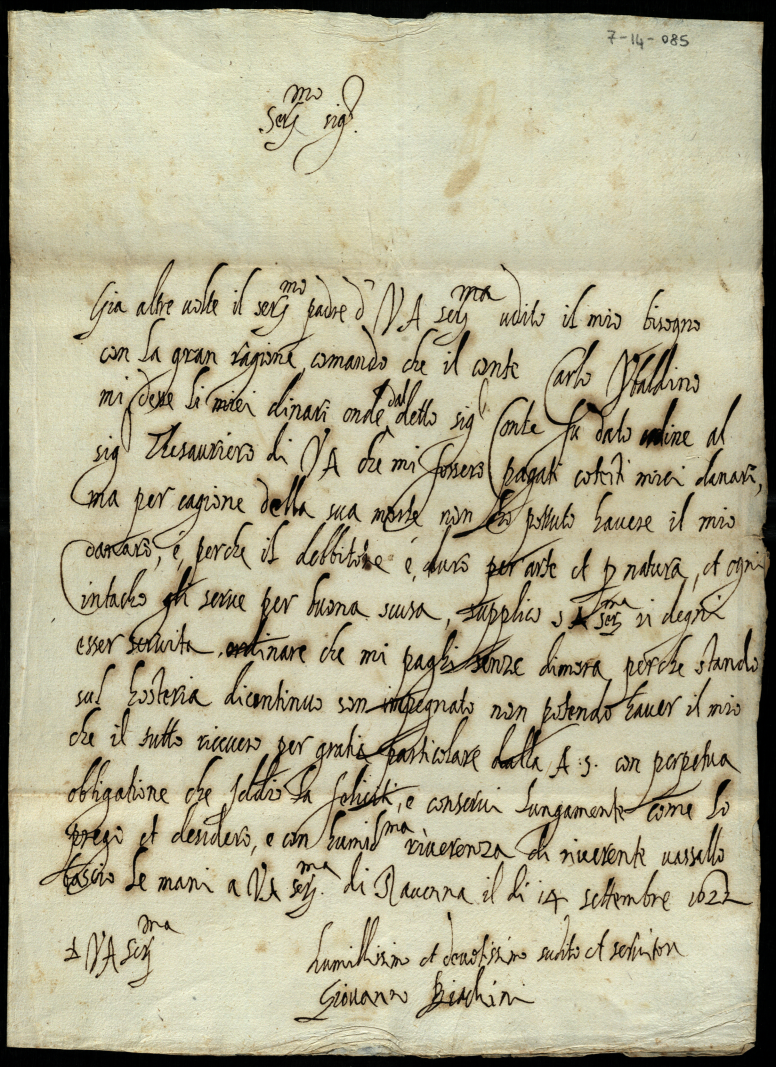 7-14-085
Ser.mo sig.r
Gia altre volte il ser.mo padre d' VA ser.ma udito il mio bisogno
con la gran ragione, comando che il conte Carlo Ubaldino
mi dese li miei dinari onde dal detto sig.r Conte fu dato ordine al
sig.r Thesauriero di VA che mi fossero pagati cotesti miei danari,
ma per cagione della sua morte non ho potuto havere il mio
danaro, é, perche il debbitore é, duro per arte et p natura, et ogni
intacho gli serve per buona scusa, supplico s A ser.ma si degni
esser servita ordinare che mi paghi senze dimora, perche stando
sul hosteria dicontinuo son impegnato non potendo haver il mio
che il tutto ricevero per gratia particolare dalla A. S. con perpetua
obligatione che Iddio la feliciti, e conservi lungamente come lo
prego et desidero, e con humil.ma riverenza di riverente vassallo
bascio le mani a VA ser.ma di Ravenna il di 14 settembre 1622
D VA ser.ma
humillissimo et devotissimo sudito et servitore
Giovanno